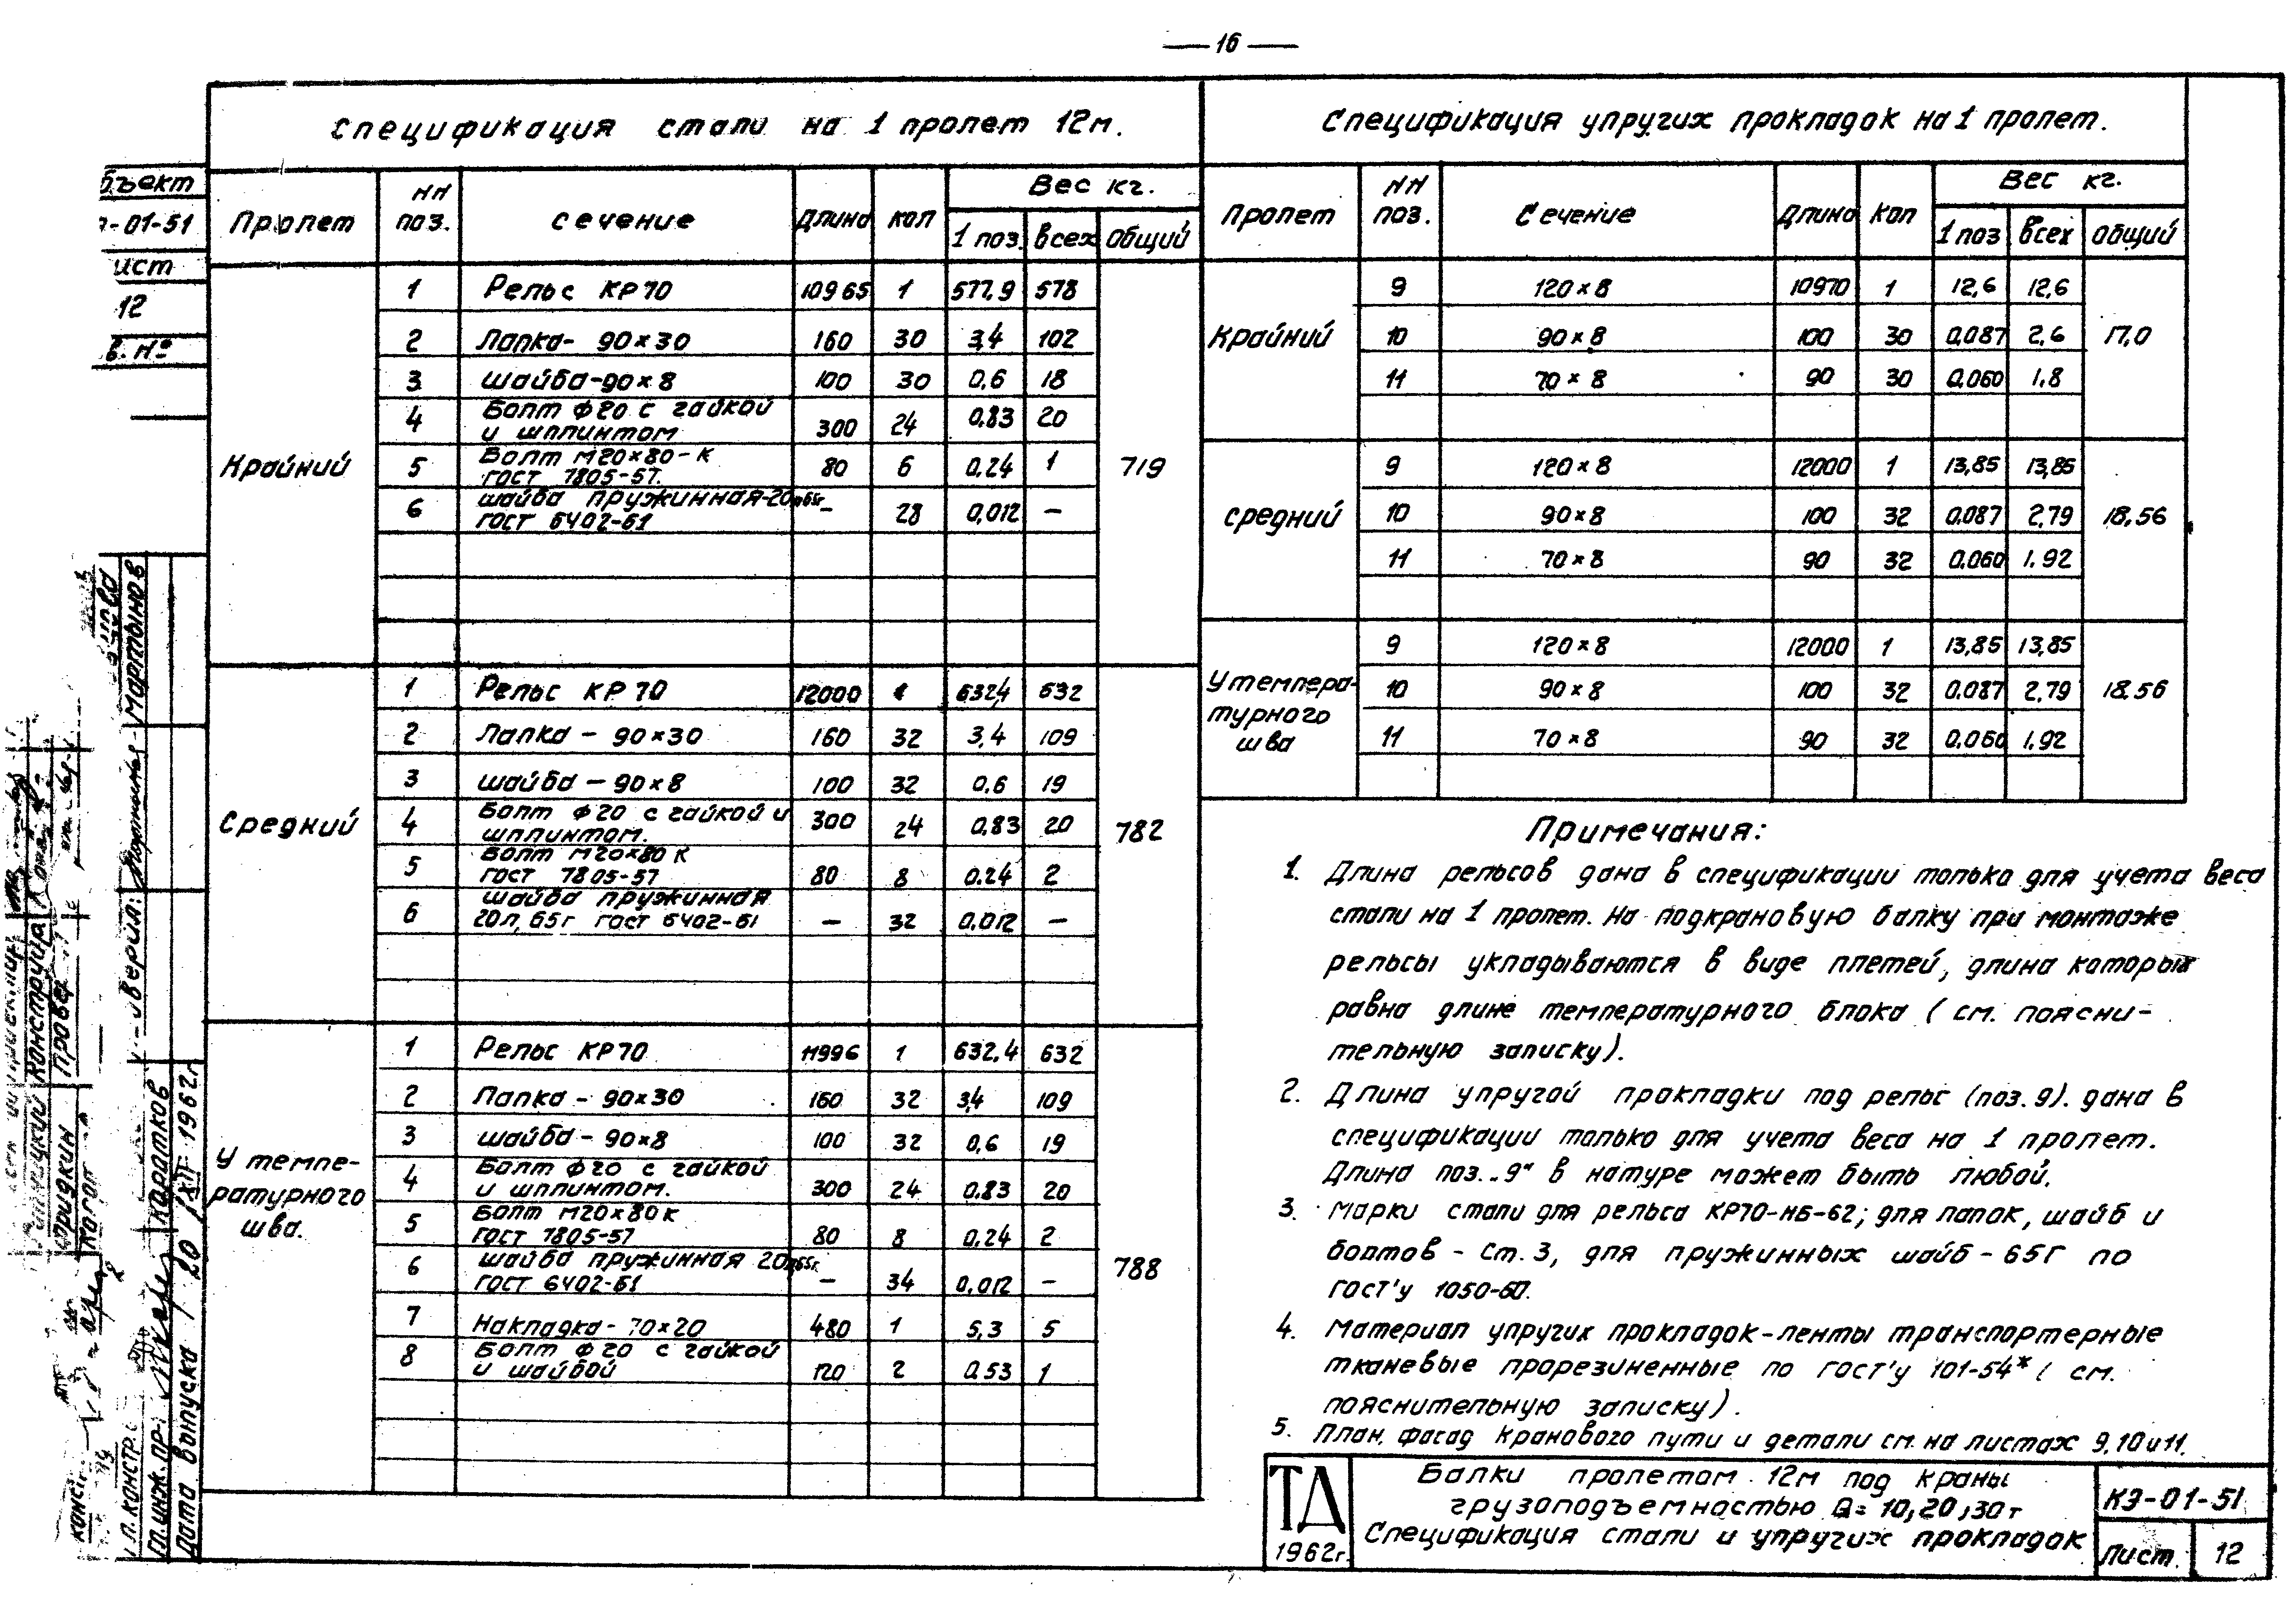 — 16 —
Спецификация стали на 1 пролет 12м.
Пролет | №№ поз. | Сечение | Длина | Кол | Вес кг. 1 поз. | всех | Общий
Крайний | 719
1 | Рельс КР70 | 10965 | 1 | 577,9 | 578
2 | Лапка - 90×30 | 160 | 30 | 3,4 | 102
3 | Шайба - 90×8 | 100 | 30 | 0,6 | 18
4 | Болт Ф20 с гайкой
и шплинтом | 300 | 24 | 0,83 | 20
5 | Болт М20×80-К
ГОСТ 7805-57. | 80 | 6 | 0,24 | 1
6 | Шайба пружинная-20н65г
ГОСТ 6402-61 | – | 28 | 0,012 | –
Средний | 782
1 | Рельс КР70 | 12000 | 1 | 632,4 | 632
2 | Лапка - 90×30 | 160 | 32 | 3,4 | 109
3 | Шайба - 90×8 | 100 | 32 | 0,6 | 19
4 | Болт Ф20 с гайкой и
шплинтом. | 300 | 24 | 0,83 | 20
5 | Болт М20×80 К
ГОСТ 7805-57 | 80 | 8 | 0.24 | 2
6 | Шайба пружинная
20л, 65г ГОСТ 6402-61 | – | 32 | 0,012 | –
У темпе-
ратурного
шва. | 788
1 | Рельс КР70 | 11996 | 1 | 632,4 | 632
2 | Лапка - 90×30 | 160 | 32 | 3,4 | 109
3 | Шайба - 90×8 | 100 | 32 | 0,6 | 19
4 | Болт Ф20 с гайкой
и шплинтом. | 300 | 24 | 0.83 | 20
5 | Болт М20×80К
ГОСТ 7805-57 | 80 | 8 | 0,24 | 2
6 | Шайба пружинная 20н65г.
ГОСТ 6402-61 | – | 34 | 0,012 | –
7 | Накладка - 70×20 | 480 | 1 | 5,3 | 5
8 | Болт Ф20 с гайкой
и шайбой | 120 | 2 | 0.53 | 1
Спецификация упругих прокладок на 1 пролет.
Пролет | №№ поз. | Сечение | Длина | Кол | Вес кг. 1 поз | Всех | Общий
Крайний | 17,0
9 | 120×8 | 10970 | 1 | 12,6 | 12,6
10 | 90×8 | 100 | 30 | 0,087 | 2,6
11 | 70×8 | 90 | 30 | 0,060 | 1.8
Средний | 18,56
9 | 120×8 | 12000 | 1 | 13,85 | 13,85
10 | 90×8 | 100 | 32 | 0.087 | 2,79
11 | 70×8 | 90 | 32 | 0.060 | 1.92
У темпера-
турного
шва | 18.56
9 | 120×8 | 12000 | 1 | 13,85 | 13,85
10 | 90×8 | 100 | 32 | 0.087 | 2.79
11 | 70×8 | 90 | 32 | 0.060 | 1.92
Примечания:
1. Длина рельсов дана в спецификации только для учета веса
стали на 1 пролет. На подкрановую балку при монтаже
рельсы укладываются в виде плетей, длина которых
равна длине температурного блока ( см. поясни-
тельную записку).
2. Длина упругой прокладки под рельс (поз. 9). дана в
спецификации только для учета веса на 1 пролет.
Длина поз. „9" в натуре может быть любой.
3. Марки стали для рельса КР70-НБ-62; для лапок, шайб и
болтов - Ст. 3, для пружинных шайб - 65Г по
ГОСТ'у 1050-60.
4. Материал упругих прокладок-ленты транспортерные
тканевые прорезиненные по ГОСТ'у 101-54* ( см.
пояснительную записку).
5. План, фасад кранового пути и детали см. на листах 9, 10 и 11.
ТД
1962г.
Балки пролетом 12м под краны
грузоподъемностью Q= 10, 20, 30т
Спецификация стали и упругих прокладок
КЭ-01-51
Лист 12
бъект
-01-51
ист
12
в. №
Мартынов
верил:
Конструир
Провер
Фридкин
Коган
Коротков
Гл. инж. пр.
Дата выпуска 20/XII 1962г